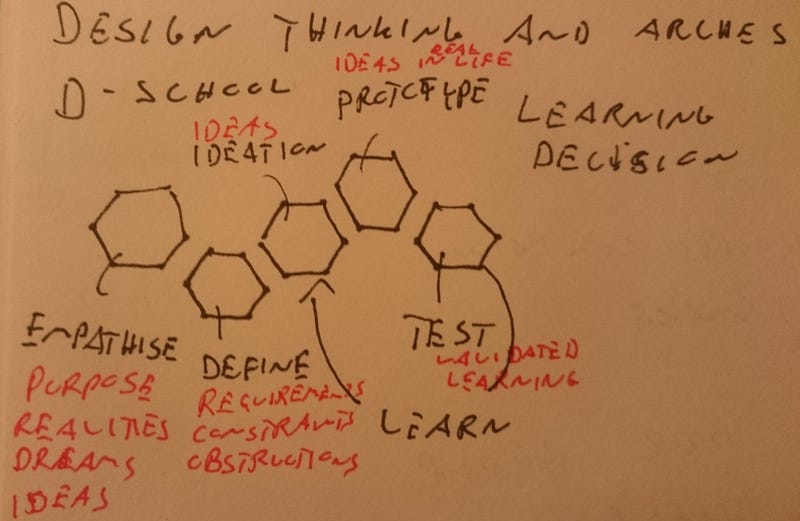 DESIGN THINKING AND ARCHES
D-SCHOOL
IDEAS IN REAL LIFE
PROTOTYPE
LEARNING
DECISION
IDEAS
IDEATION
EMPATHISE
PURPOSE
REALITIES
DREAMS
IDEAS
DEFINE
REQUIREMENTS
CONSTRAINTS
OBSTRUCTIONS
TEST
VALIDATED
LEARNING
LEARN